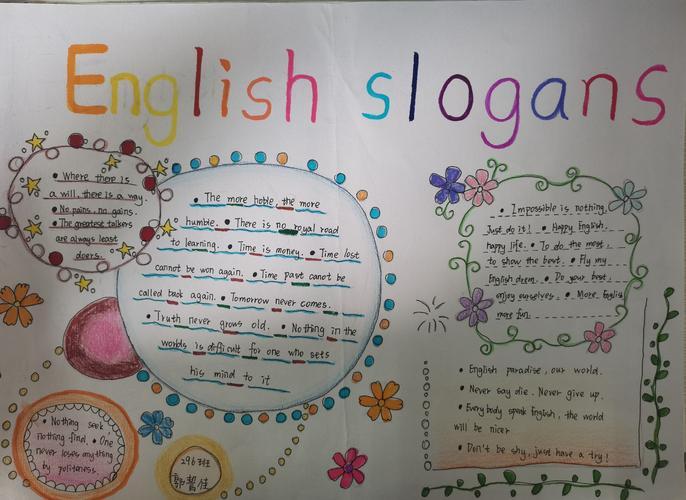 English slogans
• Where there is
a will, there is a way.
• No pains, no gains.
• The greatest talkers
are always least
doers.
• The more noble, the more
humble. • There is no royal road
to learning. • Time is money. • Time lost
cannot be won again. • Time past canot be
called back again. • Tomorrow never comes.
• Truth never grows old. • Nothing in the
worlds is difficult for one who sets
his mind to it
• Impossible is nothing.
Just do it! • Happy English,
happy life. • To do the most,
to show the best. • Fly my
English dream. • Do your best,
enjoy ourselves. • More English
more fun.
• English paradise, our world.
• Never say die. Never give up.
• Everybody speak English, the world
will be nicer
• Don't be shy, just have a try!
• Nothing seek
nothing find. • One
never loses anything
by politeness
296班
郭佳